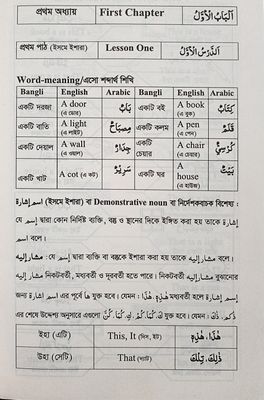 প্রথম অধ্যায় First Chapter اَلْبَابُ الْاَوَّلُ
প্রথম পাঠ (ইসমে ইশারা) Lesson One اَلدَّرْسُ الْاَوَّلُ
Word-meaning/এসো শব্দার্থ শিখি
Bangli English Arabic Bangli English Arabic
একটি দরজা A door (এ ডোর) بَابٌ একটি বই A book (এ বুক) كِتَابٌ
একটি বাতি A light (এ লাইট) مِصْبَاحٌ একটি কলম A pen (এ পেন) قَلَمٌ
একটি দেয়াল A wall (এ ওয়াল) جِدَارٌ একটি চেয়ার A chair (এ চেয়ার) كُرْسِيٌّ
একটি খাট A cot (এ কট) سَرِيْرٌ একটি ঘর A house (এ হাউজ) بَيْتٌ
اسم إشارة (ইসমে ইশারা) বা Demonstrative noun বা নির্দেশকবাচক বিশেষ্য :
যে اسم দ্বারা কোন নির্দিষ্ট ব্যক্তি, বস্তু ও স্থানের দিকে ইঙ্গিত করা হয় তাকে اسم إشارة
বলে।
مشار إليه : যে اسم দ্বারা ব্যক্তি বা বস্তুকে ইশারা করা হয় তাকে مشار إليه বলে।
مشار إليه নিকটবর্তী, মধ্যবর্তী ও দূরবর্তী হতে পারে। নিকটবর্তী مشار إليه বুঝানোর
জন্য اسم إشارة এর পূর্বে ها যুক্ত হবে। যেমন : هٰذَا، هٰذِهِ মধ্যবর্তী হলে اسم إشارة
এর শেষে উদ্দেশ্য অনুসারে এগুলো كَ، كُمَا، كُمْ، كِ، كُمَا، كُنَّ যুক্ত হবে। যেমন : ذٰكَ، ذٰكُمْ
ইহা (এটি) This, It (দিস, ইট) هٰذَا، هٰذِهِ
উহা (সেটি) That (দ্যাট) ذٰلِكَ، تِلْكَ